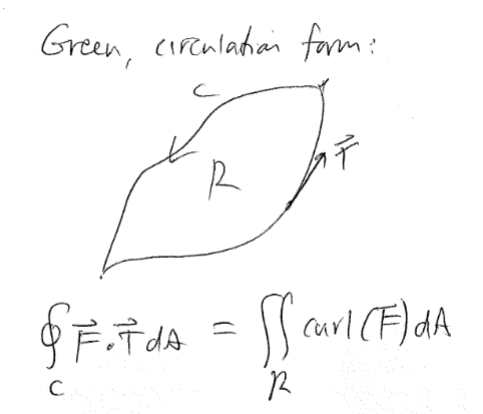 Green, circulation form:
C
R
T⃗
∮_C F⃗·T⃗ dA = ∬_R curl(F⃗) dA